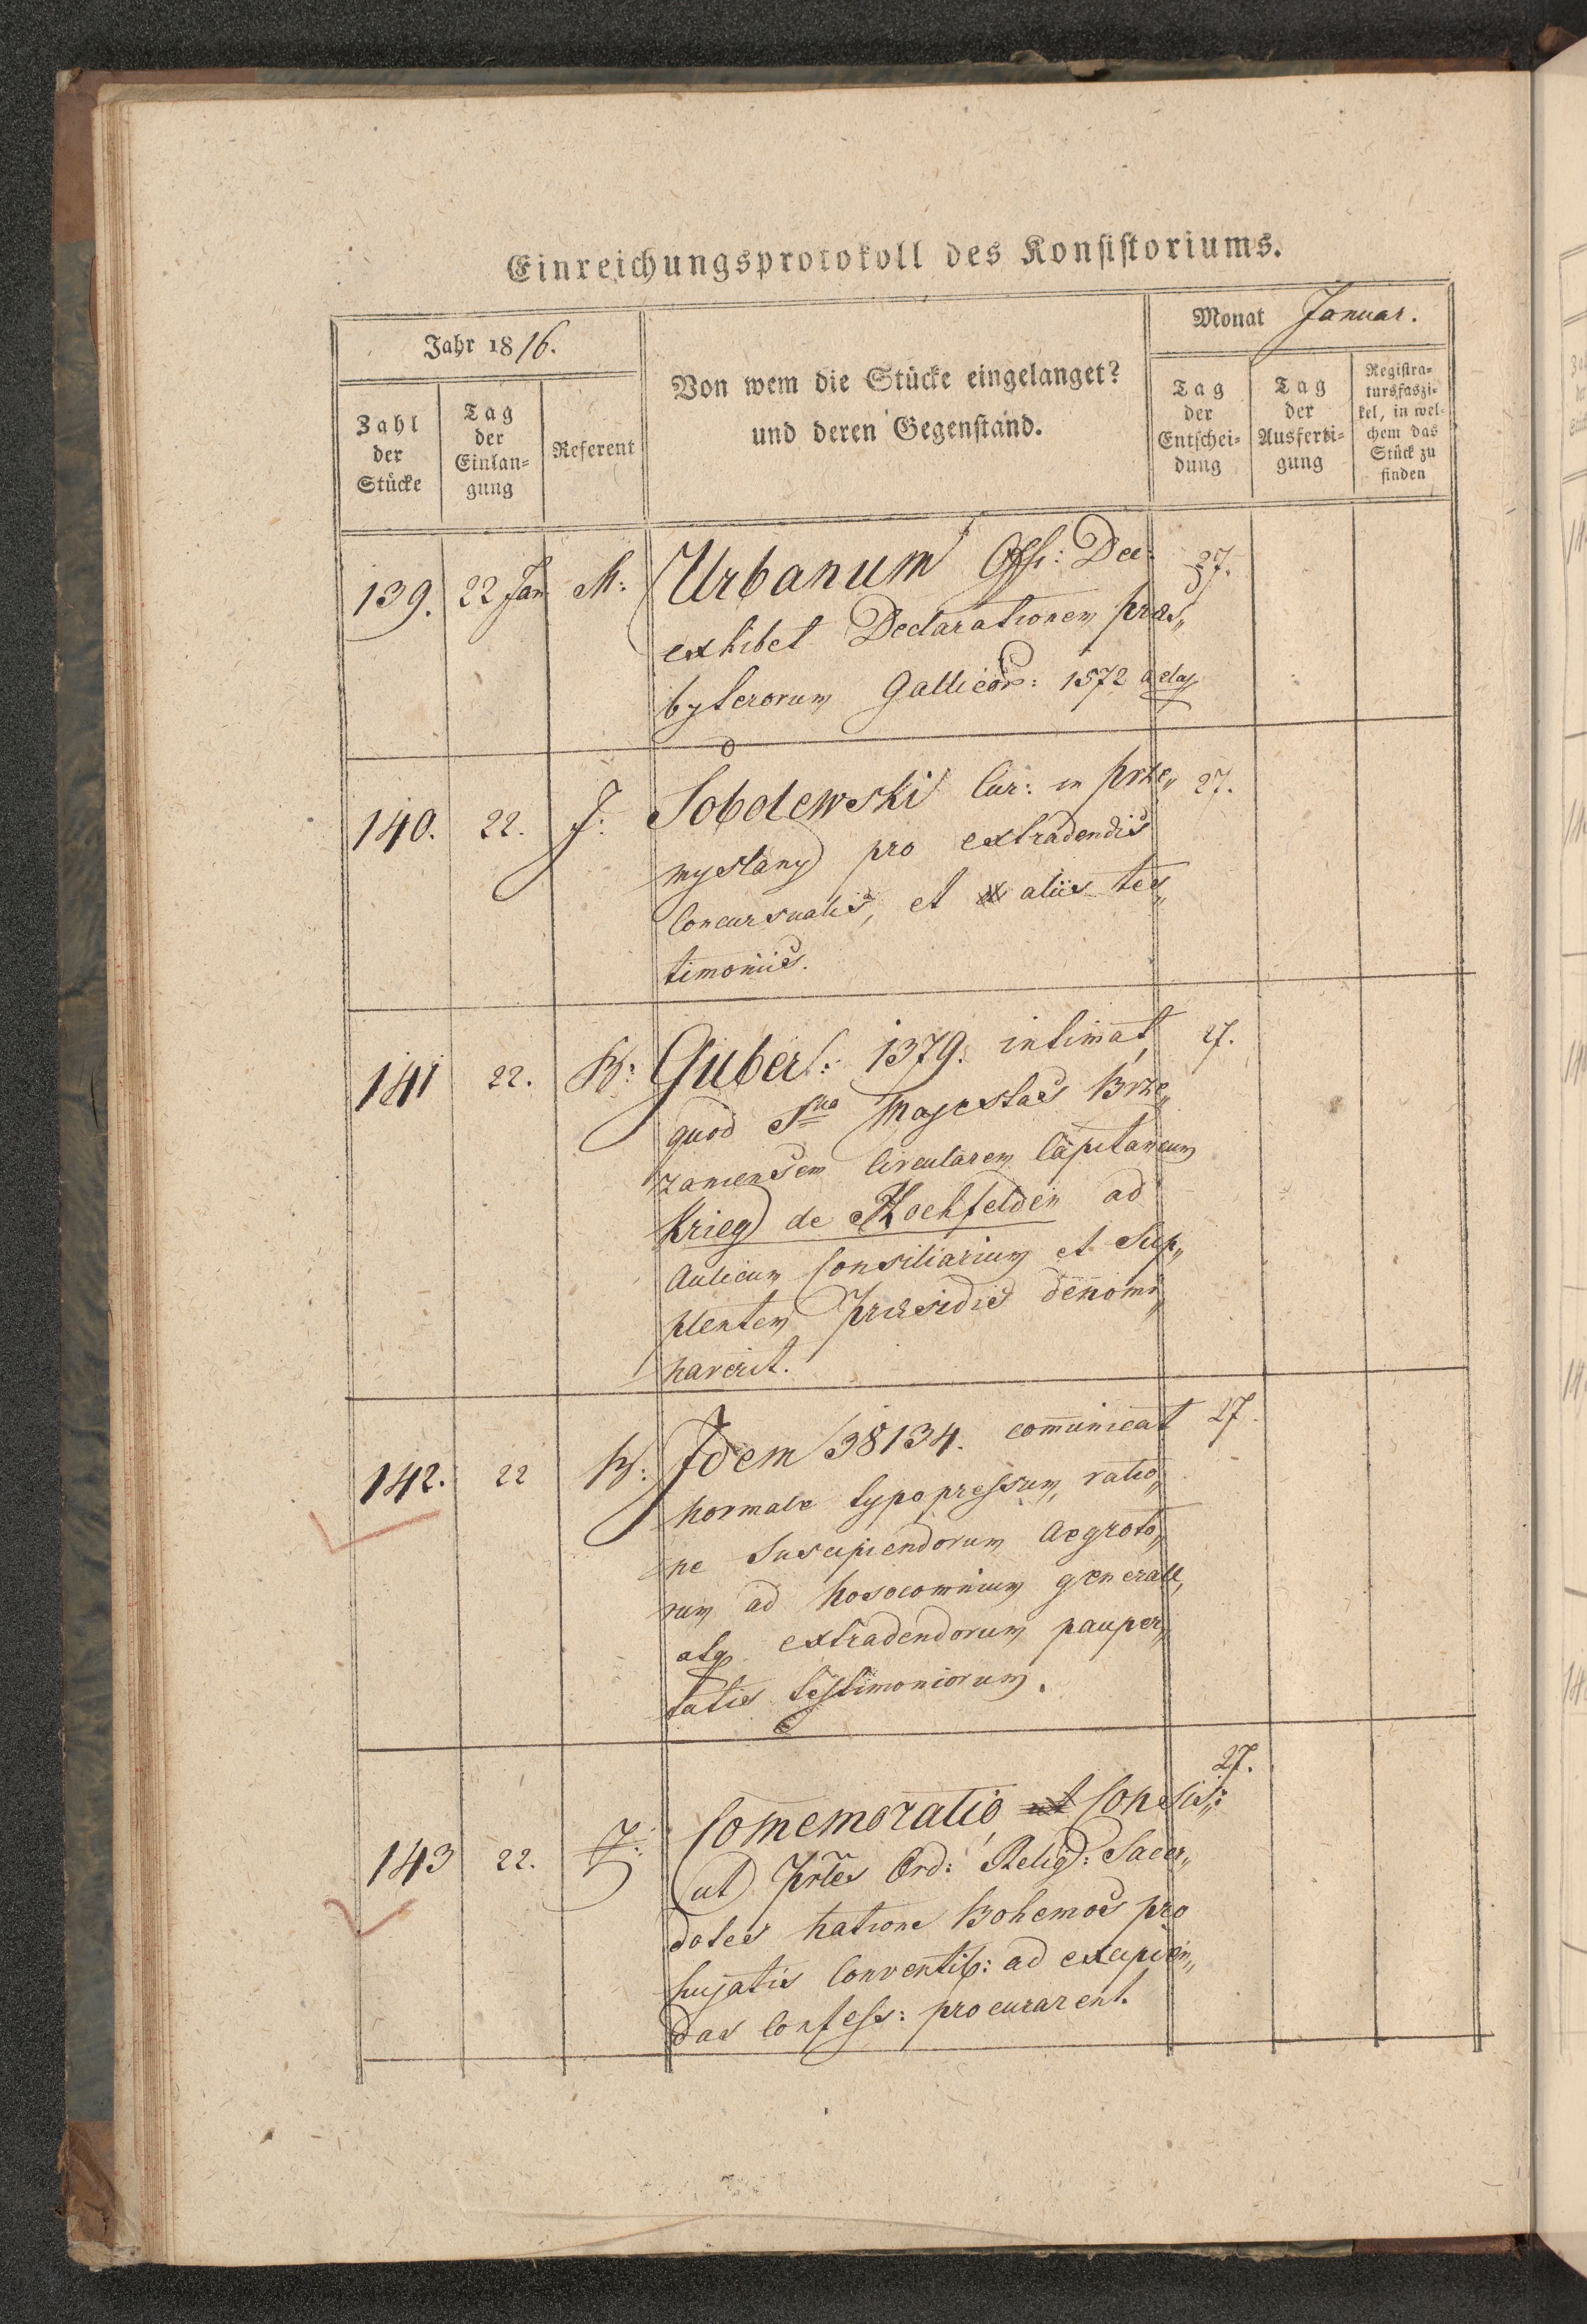 Einreichungsprotokoll des Konsistoriums.
Jahr 1816.
Von wem die Stücke eingelanget?
und deren Gegenstand.
Monat Januar.
Zahl
der
Stücke
Tag
der
Einlan=
gung
Referent
Tag
der
Entschei=
dung
Tag
der
Ausferti=
gung
Registra=
tursfaszi=
kel, in wel=
chem das
Stück zu
finden
139. 22 Jan M: Urbanum Off: Dec: 27.
exhibet Declarationem præs„
byterorum Gallicör: 1572
140. 22. J: Sobolewski Cur: in Prze„ 27.
myslany pro extradendis
Concursualis, et aliis tes„
timoniis.
141 22. B: Guber: 1379. intimat, 27.
quod Sua Majestas Brze„
zaniensem Circularem Capitaneum
Krieg de Hochfelden ad
Aulicum Consiliarium et Sup„
plentem Præsidis denomi„
naverit.
142. 22 B: Idem 38134. com̄unicat 27.
normale typopressum, ratio„
ne suscipiendorum aegroto„
rum ad nosocomnium generale,
atq extradendorum pauper„
tatis testimoniorum.
143 22. J: Com̄emoratio Consis„: 27.
ut Prles Ord: Relig: Sacer„
dotes natione Bohemos pro
hujatis Conventib: ad excipien„
das Confess: procurarent.